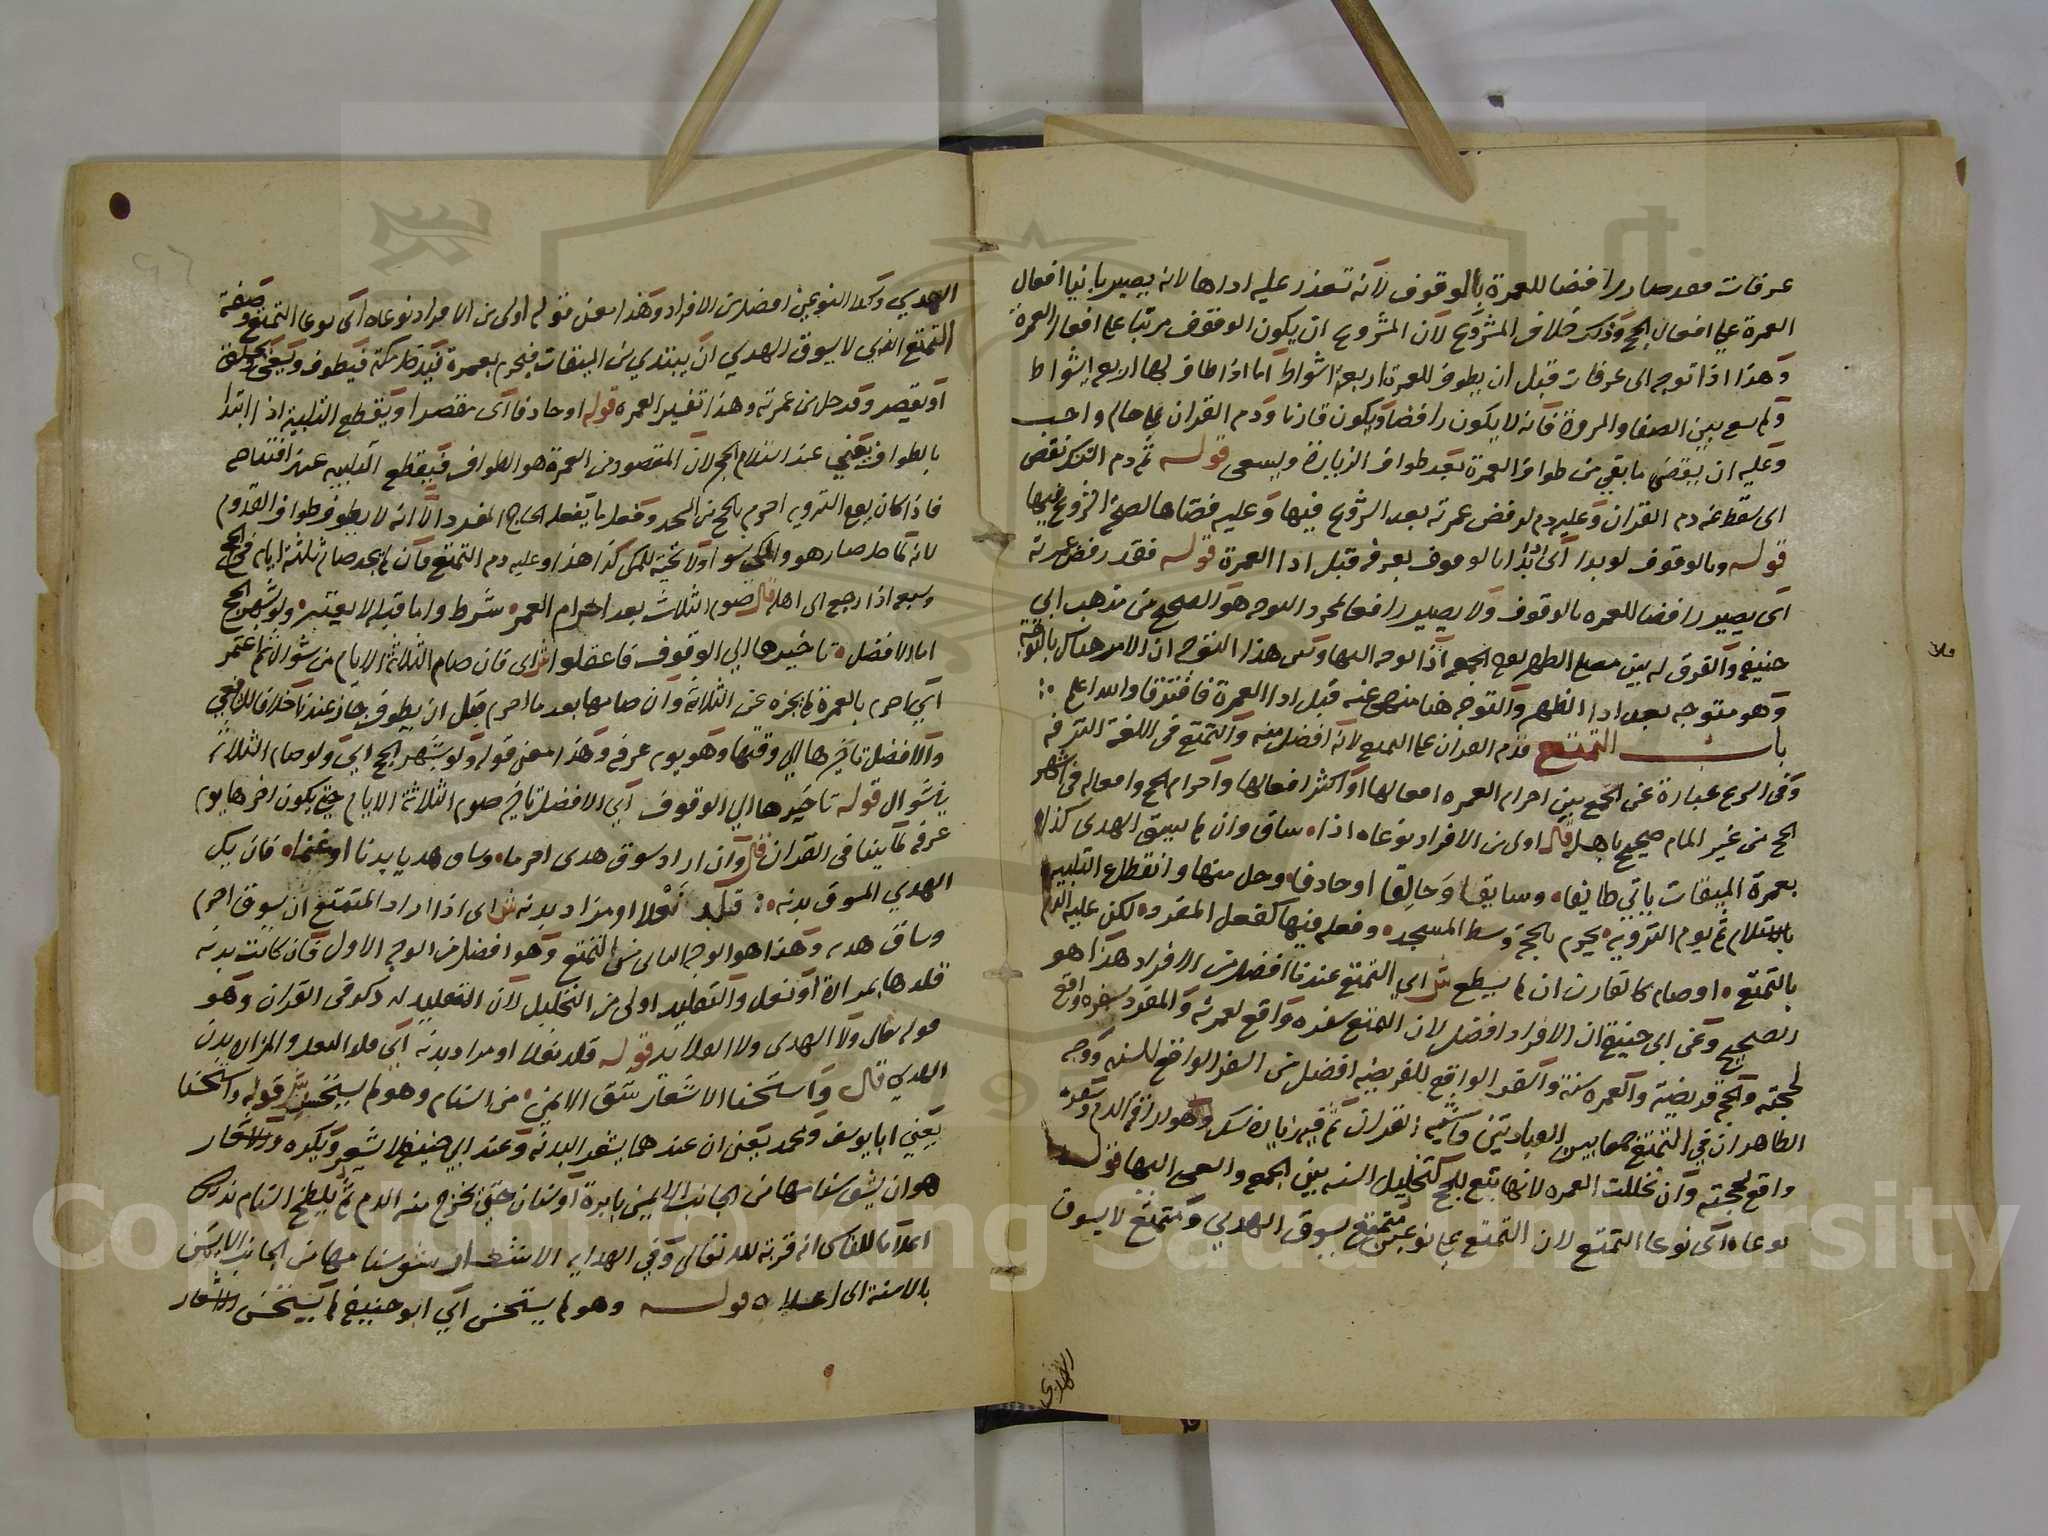 عرفات فقد صار رافضا للعمرة بالوقوف لانه تعذر عليه اداها لانه يصير بانيا افعال
العمرة على افعال الحج وذلك خلاف المشروع لان المشروع ان يكون الوقوف مرتبا على افعال العمرة
وهذا اذا توجه الى عرفات قبل ان يطوف للعمرة اربعة اشواط اما اذا طاف لها اربعة اشواط
ولم يسع بين الصفا والمروة فانه لا يكون رافضا ويكون قارنا ودم القران على حاله واجب
وعليه ان يقضي ما بقي من طواف العمرة بعد طواف الزيارة ويسعى قوله ثم دم النسك نقض
اى سقط عنه دم القران وعليه دم لرفض عمرته بعد الشروع فيها وعليه قضاها لصحة الشروع فيها
قوله وبالوقوف لو بدا اى ابتدا بالوقوف بعرفة قبل ادا العمرة قوله فقد رفض عمرته
اى يصير رافضا للعمرة بالوقوف ولا يصير رافضا بمجرد التوجه هو الصحيح من مذهب ابي
حنيفة والفرق له بين مصلى الظهر يوم الجمعة اذا توجه اليها وبين هذا التوجه ان الامر هناك بالتوجه
وهو متوجه بعد ادا الظهر والتوجه هنا منهى عنه قبل ادا العمرة فافترقا والله اعلم
باب التمتع قدم القران على التمتع لانه افضل منه والتمتع في اللغة الترفه
وفي الشرع عبارة عن الجمع بين احرام العمرة وافعالها او اكثر افعالها واحرام الحج وافعاله في اشهر
الحج من غير المام صحيح باهله قال اولى من الافراد نوعاه اذا ساق وان لم يسق الهدى كذا
بعمرة الميقات ياتي طايفا وسابقا وحالقا او حادفا وحل منها وانقطاع التلبية
بالاستلام ثم يوم التروية يحرم بالحجة وسط المسجد وفعله فيها كفعل المفرد لكن عليه الدم
بالتمتع او صام كالقارن ان لم يسطع ش اي التمتع عندنا افضل من الافراد هذا هو
الصحيح وعن ابى حنيفة ان الافراد افضل لان المتمتع سفره واقع لعمرته والمفرد سفره واقع
لحجته والحجة فريضة والعمرة سنة والسفر الواقع للفريضة افضل من السفر الواقع للسنة ووجه
الظاهر ان في التمتع جمعا بين العبادتين فاشبه القران ثم فيه زيادة نسك وهو اراقة الدم وسفره
واقع لحجته وان تخللت العمرة لانها تبع للحج كتخليل السنة بين الجمعة والسعى اليها قوله
نوعاه اى نوعا التمتع لان التمتع على نوعين متمتع يسوق الهدي ومتمتع لا يسوق
الهدي
الهدي وكلا النوعين افضل من الافراد وهذا معنى قوله اولى من الافراد نوعاه اى نوعا التمتع وصفة
التمتع الذي لا يسوق الهدي ان يبتدي من الميقات فيحرم بعمرة فيدخل مكة فيطوف ويسعى ويحلق
او يقصر وقد حل من عمرته وهذا تفسير العمرة قوله او حادفا اى مقصرا ويقطع التلبية اذا ابتدا
بالطواف يعني عند استلام الحجر لان المقصود من العمرة هو الطواف فيقطع التلبية عند افتتاحه
فاذا كان يوم التروية احرم بالحج من المسجد وفعل ما يفعله الحاج المفرد الا انه لا يطوف طواف القدوم
لانه لما حل صار هو والمكى سوا ولا تحية للمكى كذا هذا وعليه دم التمتع فان لم يجد صام ثلثة ايام في الحج
وسبعة اذا رجع الى اهله قال صوم الثلاث بعد احرام العمرة شرط واما قبله لا يعتبر ولو بشهر الحج
اما الافضل تاخيرها الي الوقوف فاعقلوا ش اى فان صام الثلاثة الايام من شوال ثم اعتمر
اي احرم بالعمرة لم يجزه عن الثلاثة وان صامها بعد ما احرم قبل ان يطوف جاز عندنا خلافا للشافعي
والافضل تاخيرها الى وقتها وهو يوم عرفة وهذا معنى قوله ولو بشهر الحج اي ولو صام الثلاثة
في شوال قوله تاخيرها الي الوقوف اي الافضل تاخير صوم الثلاثة الايام حتى يكون اخرها يوم
عرفة لما بينا فى القران قال وان اراد سوق هدى احرما وساق هديا بدنا او غنما فان يك
الهدي المسوق بدنه قلد نعلا او مزاد بدنه ش اى اذا اراد المتمتع ان يسوق احرم
وساق هديه وهذا هو الوجه الثانى من التمتع وهو افضل من الوجه الاول فان كانت بدنة
قلدها بمزادة او نعل والتقليد اولى من التجليل لان التقليد له ذكر فى القران وهو
قوله تعالى ولا الهدى ولا القلايد قوله قلد نعلا او مزاد بدنه اي قلد النعل والمزاد بدن
الهدي قال واستحسنا الاشعار شق الايمن من السنام وهو لم يستحسن ش قوله واستحسنا
يعني ابا يوسف ومحمد يعنى ان عندهما يشعر البدنة وعند ابي حنيفة لا يشعر ويكره والاشعار
هو ان يشق سنامها من الجانب الايمن بابرة او سنان حتى يخرج منه الدم ثم يلطخ السنام بذلك
اعلاما للناس انه قربة لله تعالى وفي الهداية الاشعار شق سنامها من الجانب الايسر
بالاسنة الى اعلاه قوله وهو لم يستحسن اي ابو حنيفة لم يستحسن الاشعار
Copyright © King Saud University